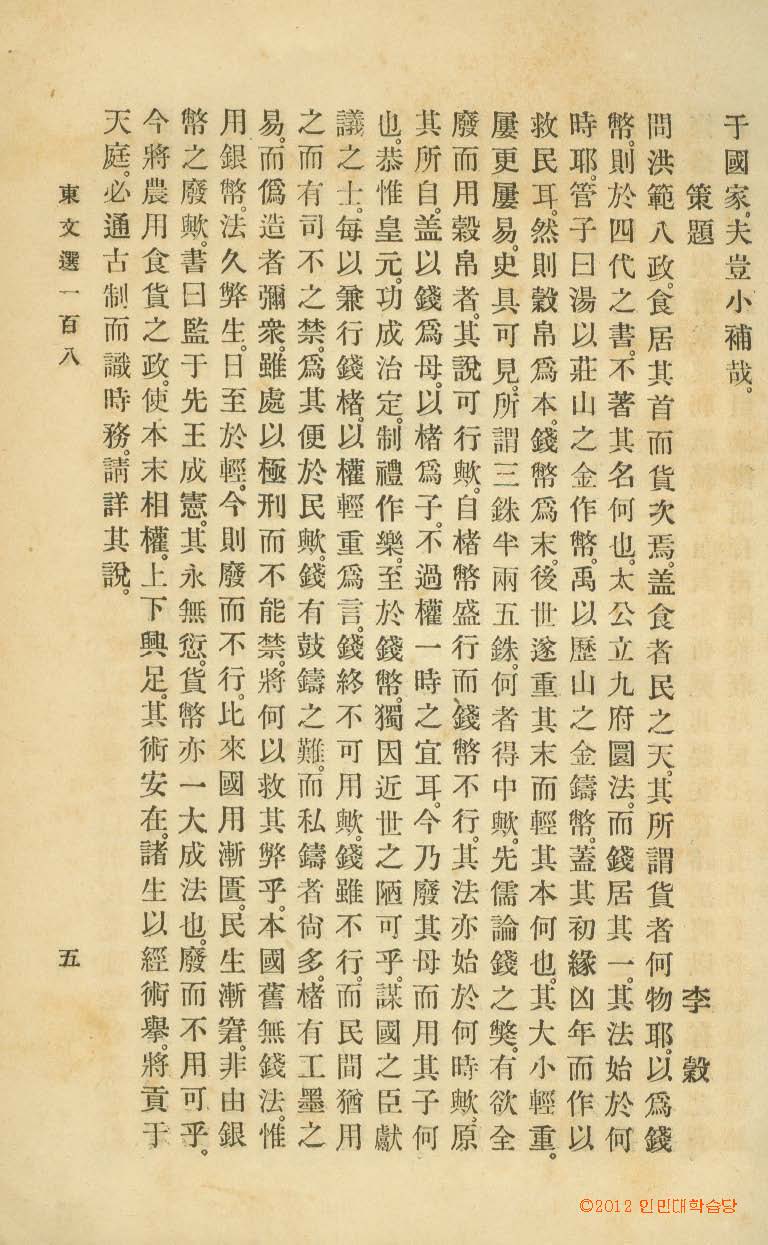 于國家。夫豈小補哉。
策題 李穀
問洪範八政。食居其首而貨次焉。盖食者民之天。其所謂貨者何物耶。以爲錢
幣。則於四代之書。不著其名何也。太公立九府圜法。而錢居其一。其法始於何
時耶。管子曰湯以莊山之金作幣。禹以歷山之金鑄幣。蓋其初緣凶年而作以
救民耳。然則穀帛爲本。錢幣爲末。後世遂重其末而輕其本何也。其大小輕重。
屢更屢易。史具可見。所謂三銖半兩五銖。何者得中歟。先儒論錢之獘。有欲全
廢而用穀帛者。其說可行歟。自楮幣盛行而錢幣不行。其法亦始於何時歟。原
其所自。盖以錢爲母。以楮爲子。不過權一時之宜耳。今乃廢其母而用其子何
也。恭惟皇元。功成治定。制禮作樂。至於錢幣。獨因近世之陋可乎。謀國之臣獻
議之士。每以兼行錢楮。以權輕重爲言。錢終不可用歟。錢雖不行。而民間猶用
之而有司不之禁。爲其便於民歟。錢有鼓鑄之難。而私鑄者尙多。楮有工墨之
易。而僞造者彌衆。雖處以極刑而不能禁。將何以救其弊乎。本國舊無錢法。惟
用銀幣。法久弊生。日至於輕。今則廢而不行。比來國用漸匱。民生漸窘。非由銀
幣之廢歟。書曰監于先王成憲。其永無愆。貨幣亦一大成法也。廢而不用可乎。
今將農用食貨之政。使本末相權。上下興足。其術安在。諸生以經術擧。將貢于
天庭。必通古制而識時務。請詳其說。
東文選一百八 五
©2012 인민대학습당